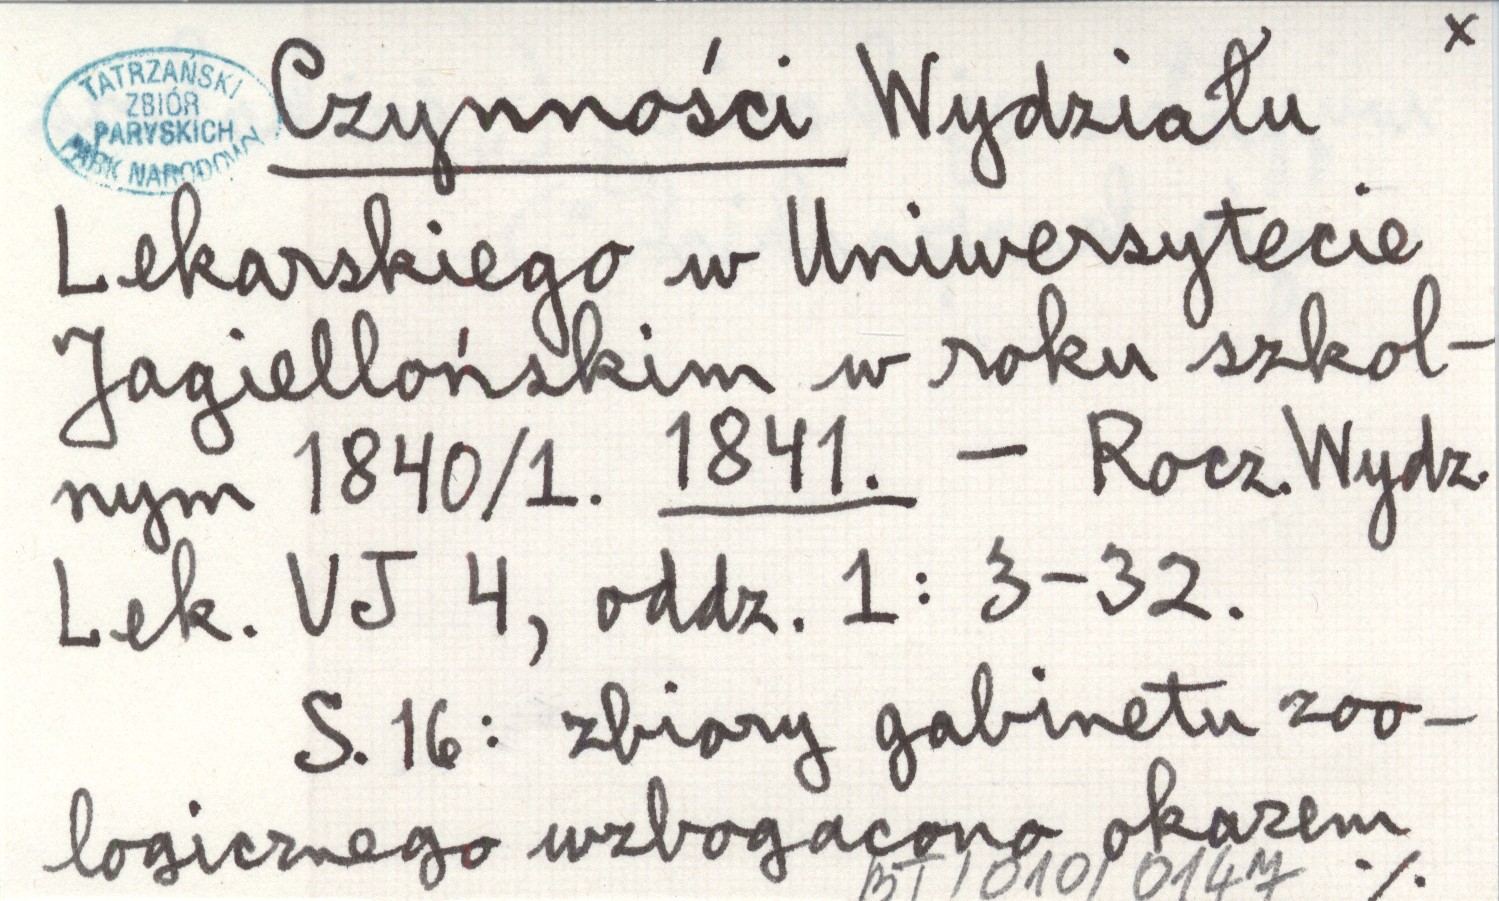 x
TATRZAŃSKI
ZBIÓR
PARYSKICH
PARK NARODOWY
Czynności Wydziału
Lekarskiego w Uniwersytecie
Jagiellońskim w roku szkol-
nym 1840/1. 1841. – Rocz. Wydz.
Lek. UJ 4, oddz. 1: 3-32.
S. 16: zbiory gabinetu zoo-
logicznego wzbogacono okazem
BT/010/014M ./.